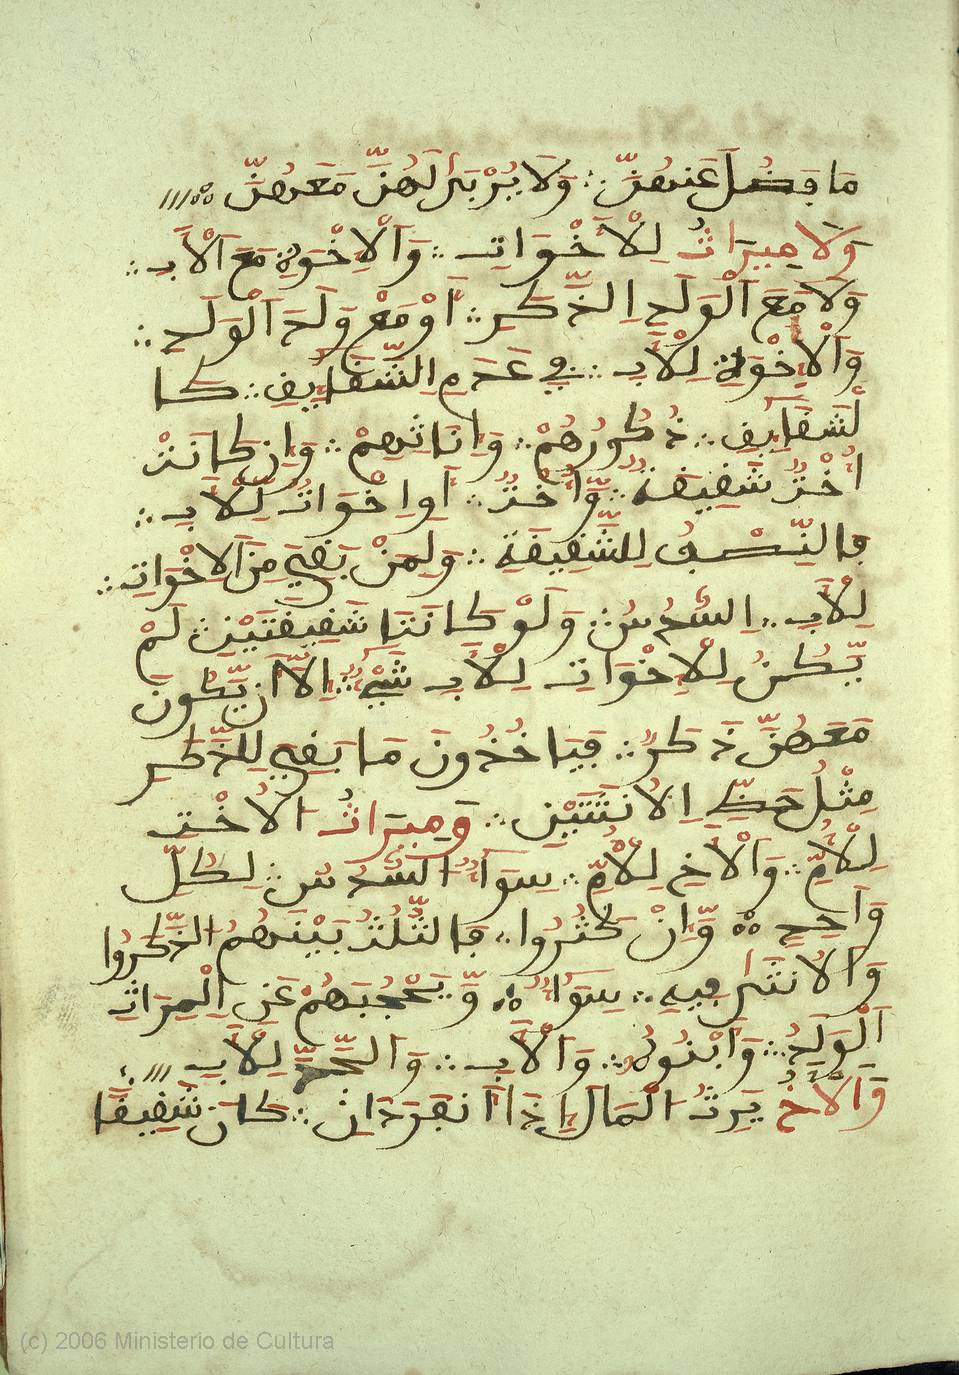 مَا فَضُلَ عَنهُنَّ ۞ وَلَا يُرْبَىٰ لَهُنَّ مَعَهُنَّ
وَلَا مِيرَاثُ لِلْأَخْوَاتِ ۞ وَٱلْإِخْوَةِ مَعَ ٱلْأَبِ ۞
وَلَا مَعَ ٱلْوَلَدِ اِلذَّكَرِ ۞ أَوْ مَعْ وَلَدَ ٱلْوَلَدِ ۞
وَٱلْإِخْوَةُ لِلْأَبِ ۞ فِي عَدَمِ اِلشَّقَايِقِ ۞ كَا
لشَقَايِقِ ۞ ذُكُورُهُمْ ۞ وَإِنَاثهِمْ ۞ وَإِن كَانَتْ
اُخْتٌ شَقِيقَةٌ ۞ وَّأُخْتٌ ۞ أَوِ اخْوَاتٌ لِّلْأَبِ ۞
فَالنِّصْفُ لِلشَّقِيقَةِ ۞ وَلِمَنْ بَقِيَ مِنَ ٱلْإِخْوَاتِ ۞
لِلْأَبِ ۞ اِلسُّدُسُ ۞ وَلَوْ كَانَتَا شَقِيقَتَيْنِ ۞ لَمْ
يَّكُنُ لِلْإِخْوَاتِ لِلْأَبِ شَيْءٌ ۞ اِلَّا أَن يَّكُونَ
مَعَهُنَّ ذَكَرٌ ۞ فَيَاخُذُونَ مَا بَقِيَ لِلذَّكَرِ
مِثْلُ حَظِّ اِلْأُنثَيَيْنِ ۞ وَمِيرَاثُ الْأُخْتِ
لِلْأُمِّ ۞ وَٱلْأَخِ لِلْأُمِّ ۞ سَوَآءٌ ٱلسُّدُسُ ۞ لِكُلِّ
وَاحِدٍ ۞ وَّإِنْ كَثُرُوا ۞ فَالثُّلُثُ بَيْنَهُمُ الذَّكَرُوا
وَالْأُنثَىٰ فِيهِ ۞ سَوَآءٌ ۞ وَّيَحْجُبُهُمْ عَنِ اِلْمِيرَاثِ
ٱلْوَلَدُ ۞ وَٱبْنُوهُ ۞ وَٱلْأَبِ ۞ وَٱلْجَدِّ لِلْأَبِ
وَٱلْأَخُ يَرِثُ الْمَالَ إِذَا اَنفَرَدَ ۞ كَانَ شَقِيقًا
(c) 2006 Ministerio de Cultura